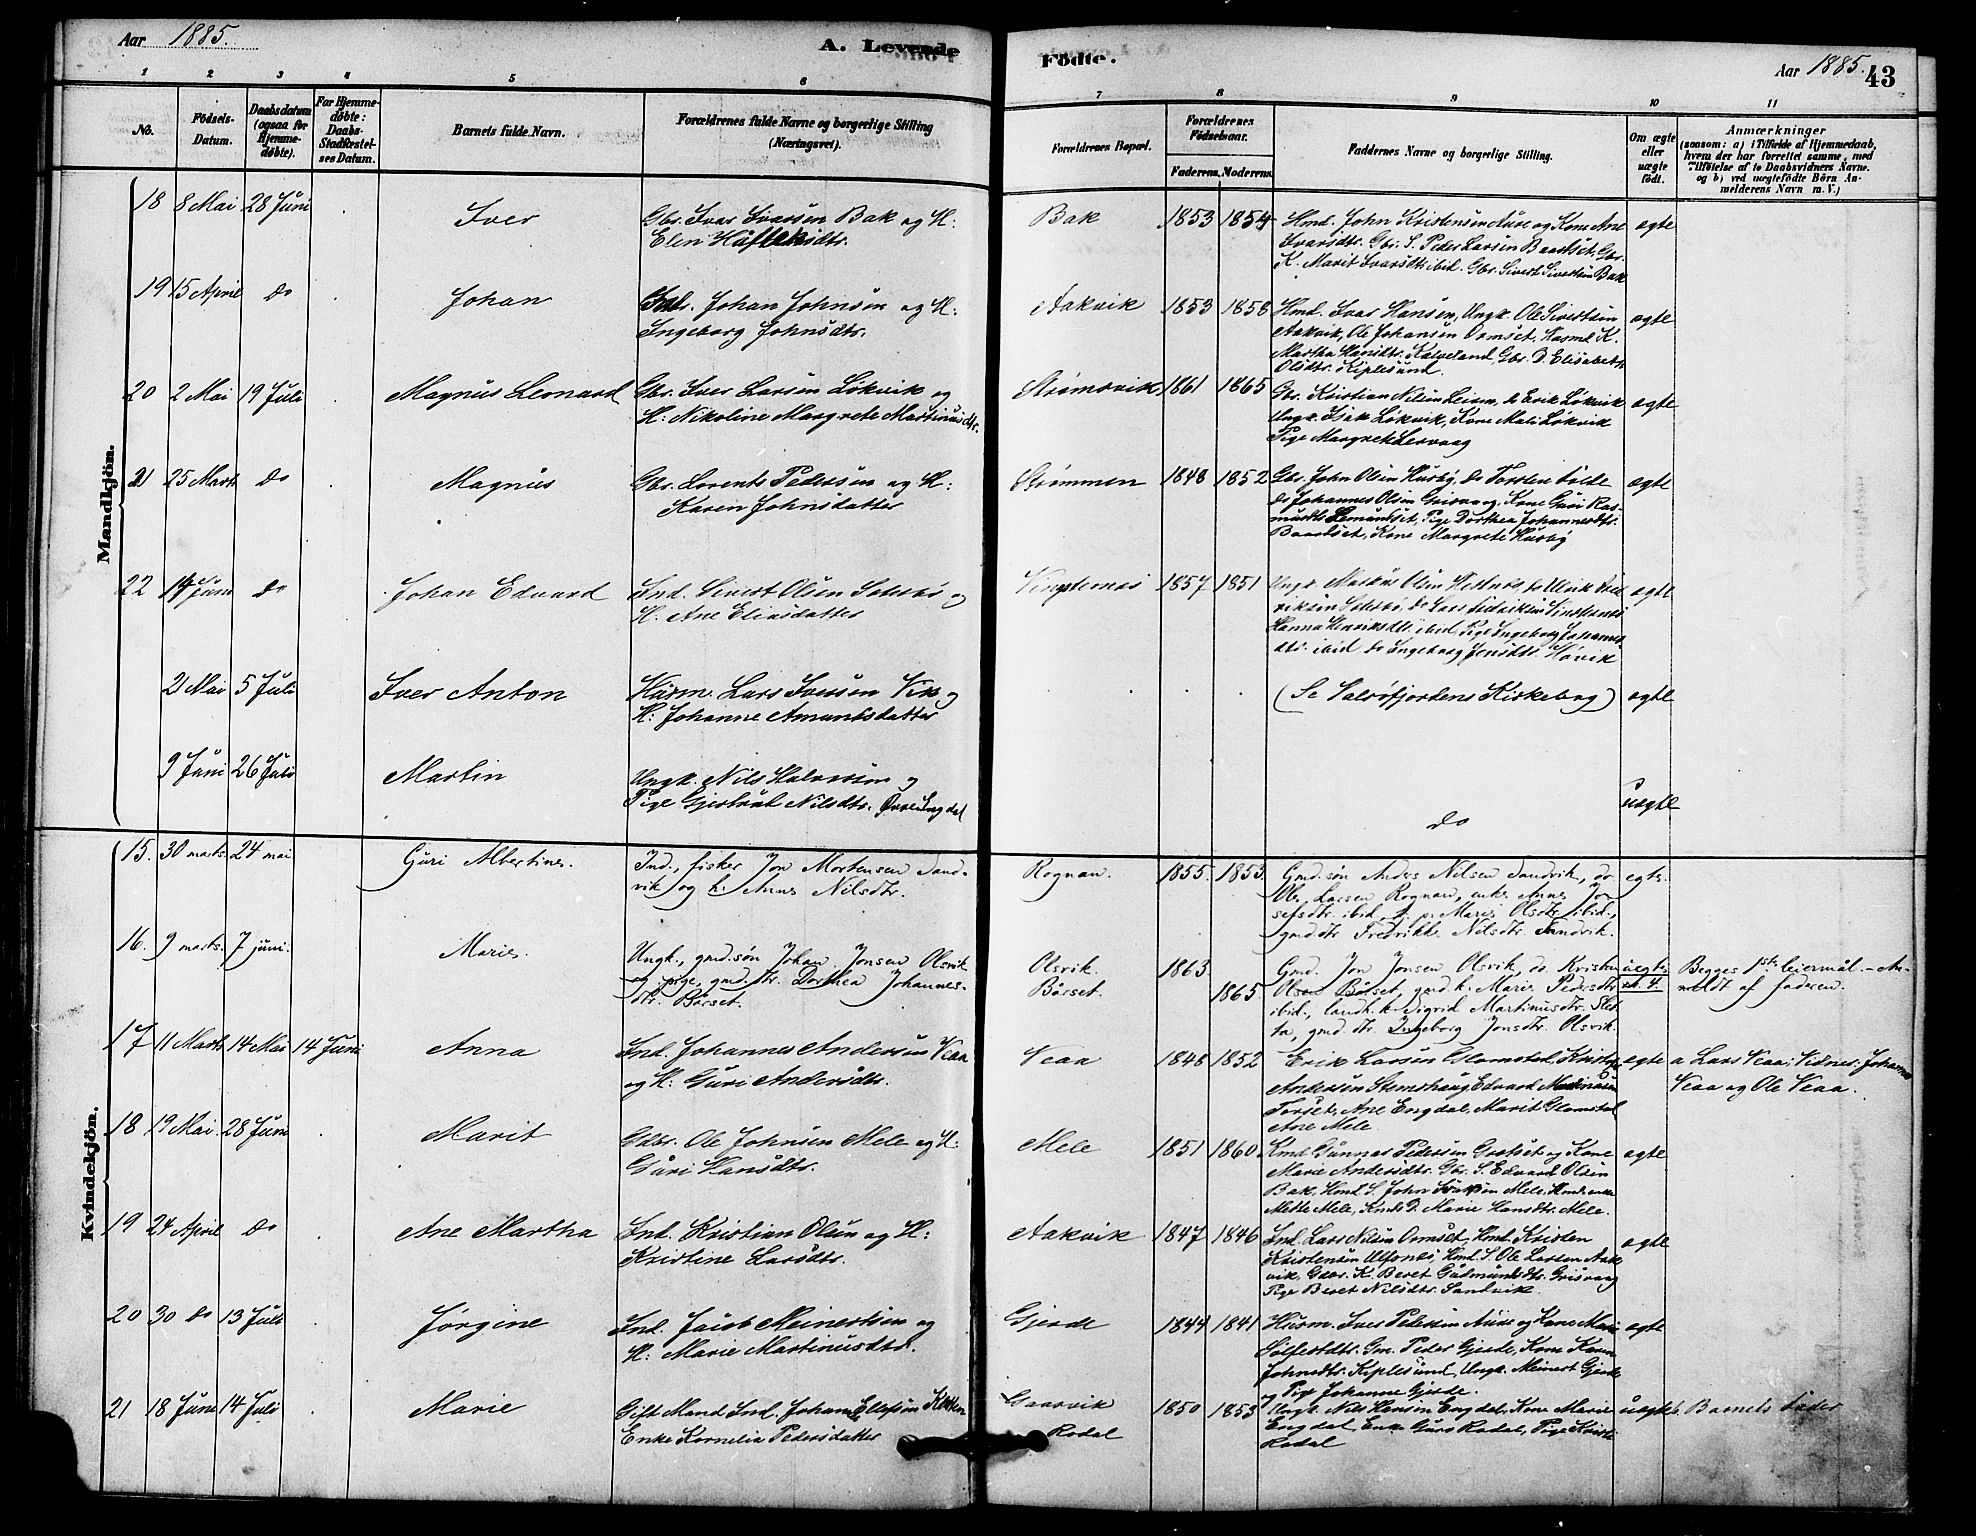 Aar 1885.
A. Levende
Födte.
Aar 1885.
43
1 2 3 4 5 6
7 8 9 10 11
No.
Födsels-
Datum.
Daabsdatum
(ogsaa for
Hjemme-
döbte).
For Hjemme-
döbte:
Daabs-
Stadfæstel-
ses Datum.
Barnets fulde Navn.
Forældrenes fulde Navne og borgerlige Stilling
(Næringsvei).
Forældrenes Bopæl.
Forældrenes
Födselsaar.
Faderens. Moderens.
Faddernes Navne og borgerlige Stilling.
Om ægte
eller
uægte
födt.
Anmærkninger
(saasom: a) i Tilfælde af Hjemmedaab,
hvem der har forrettet samme, med
Tilföielse af to Daabsvidners Navne.
og b) ved uægtefödte Börn An-
melderens Navn m. V.)
Mandkjön.
18 8 Mai 28 Juni
Iver
Gbr. Ivar Ivarsen Bak og H:
Elen Haftoksdtr.
Bak
1853 1854
Hmd. John Kristensen Aure og Kone Ane
Ivarsdtr. Gbr. S. Peder Larsen Baardset, Gbr.
K. Marit Ivarsdtr ibid. Gbr. Sivert Sivertsen Bak
ægte
19 15 April do
Johan
Ind. Johan Johnsen og H:
Ingeborg Johnsdtr.
Aakvik
1853 1858
Hmd. Ivar Hansen, Ungk. Ole Sivertsen
Aakvik, Ole Johansen Ormset, Husmd. K.
Martha Hansdtr. Kalveland, Gbr. D. Elisabeth
Olsdtr. Kiplesund.
ægte
20 2 Mai 19 Juli
Magnus Leonard
Gbr. Iver Larsen Løkvik og
H: Nikoline Margrete Martinusdtr.
Strømsvik
1861 1865
Gbr. Kristian Nilsen Leiren, do Erik Løkvik
Ungk. Isak Løkvik, Kone Mali Løkvik
Pige Margrete Lervaag
ægte
21 25 Marts do
Magnus
Gbr. Lorents Pedersen og H:
Karen Johnsdatter
Strømmen
1848 1852
Gbr. John Olsen Husby, do Torsten Tolde
do Johannes Olsen Grisvaag, Kone Guri Ras-
musdtr. Semundset, Pige Dorthea Johannesdtr.
Baardset, Kone Margrete Husby
ægte
22 14 Juni do
Johan Edvard
Ind. Sivert Olsen Solesbø og
H. Ane Eliasdatter
1857 1851
Hanna Henriksdtr. ibid, Pige Ingeborg Johannes
dtr. ibid do Ingeborg Jensdtr. Høvik
ægte
21 Mai 5 Juli
Iver Anton
Husm. Lars Iversen Vik og
H: Johanne Amundsdatter
(Se Valsøfjordens Kirkebog)
ægte
9 Juni 26 Juli
Martin
Ungk. Nils Halvorsen og
Pige Gjertrud Nilsdtr. Øvre Engdal
do
uægte
Kvindekjön.
15. 30 marts. 24 mai
Guri Albertine.
Ind., fisker Jon Mortensen Sand-
vik og h. Anne Nilsdtr.
Rognan.
1855. 1853.
Gmd.søn Anders Nilsen Sandvik, do
Ole Larsen Rognan, enke Anne Jo-
sefsdtr. ibid, p. Marie Olsdtr. ibid.,
gmd.dtr. Fredrikke Nilsdtr. Sandvik.
egte.
16. 9 marts. 7 juni.
Marie.
Ungk., gmd.søn Johan Jonsen Olsvik
og pige, gmd. dtr. Dorthea Johannes-
dtr. Bårset.
Olsvik.
Bårset.
1863.
1865.
Gmd. Jon Jonsen Olsvik, do. Kristen
Olsen Bårset, gmd.k. Marie Pedersdtr
ibid., landh.k. Sigrid Martinusdtr. Slet-
ta, gmd. dtr. Ingeborg Jonsdtr. Olsvik.
uegte.
Begges 1ste leiermål. - An-
meldt af faderen.
17 11 Marts 14 Mai 14 Juni
Anna
Ind. Johannes Andersen Veaa
og H: Guri Andersdtr.
Veaa
1848 1852
Erik Larsen Glamstad, Kristofer
Andersen Stemshaug, Edvard
Torset, Ane Engdal, Marit Glamstad
Ane Mele.
ægte
a Lars Veaa; Vidner: Johannes
Veaa og Ole Veaa.
18 19 Mai 28 Juni
Marit
Gdbr. Ole Johnsen Mele og H:
Guri Hansdtr.
Mele
1851 1860
Kmd. Gunnar Pedersen Grøtset og Kone
Marie Andersdtr. Gbr. S. Edvard Olsen
Bak, Hmd. S. John Isaksen Mele, Hmds enke
Mette Mele, Kmds D. Marie Hansdtr Mele.
ægte
19 24 April do
Ane Martha
Ind. Kristian Olsen og H:
Kristine Larsdtr.
Aakvik
1847 1846
Ind. Lars Nilsen Ormset, Hmd. Kristen
Kristensen Ulfsnes, Hmd. S. Ole Larsen Aak
vik, Gdbr. K. Beret Gudmundsdtr. Grisvaag
Pige Beret Nilsdtr. Sandvik.
ægte
20 30 do 13 Juli
Jørgine
Ind. Jacob Meinertsen og
H: Marie Martinusdtr.
Gjerde
1844 1841
Husm. Iver Pedersen Aure og Kone Marie
Sølfestdtr. Gm. Peder Gjerde, Kone Karen
Johnsdtr. Kiplesund, Ungk. Meinert Gjerde
og Pige Johanne Gjerde.
ægte
21 18 Juni 14 Juli
Marie
Gift Mand Ind. Johan Elefsen Korsen
Enke Kornelia Pedersdatter
Gaarvik
Rodal
1850 1853
Ungk. Nils Hansen Engdal, Kone Marie
Engdal, Enke Guro Rodal, Pige Kristi
Rodal
uægte
b. Barnets Fader